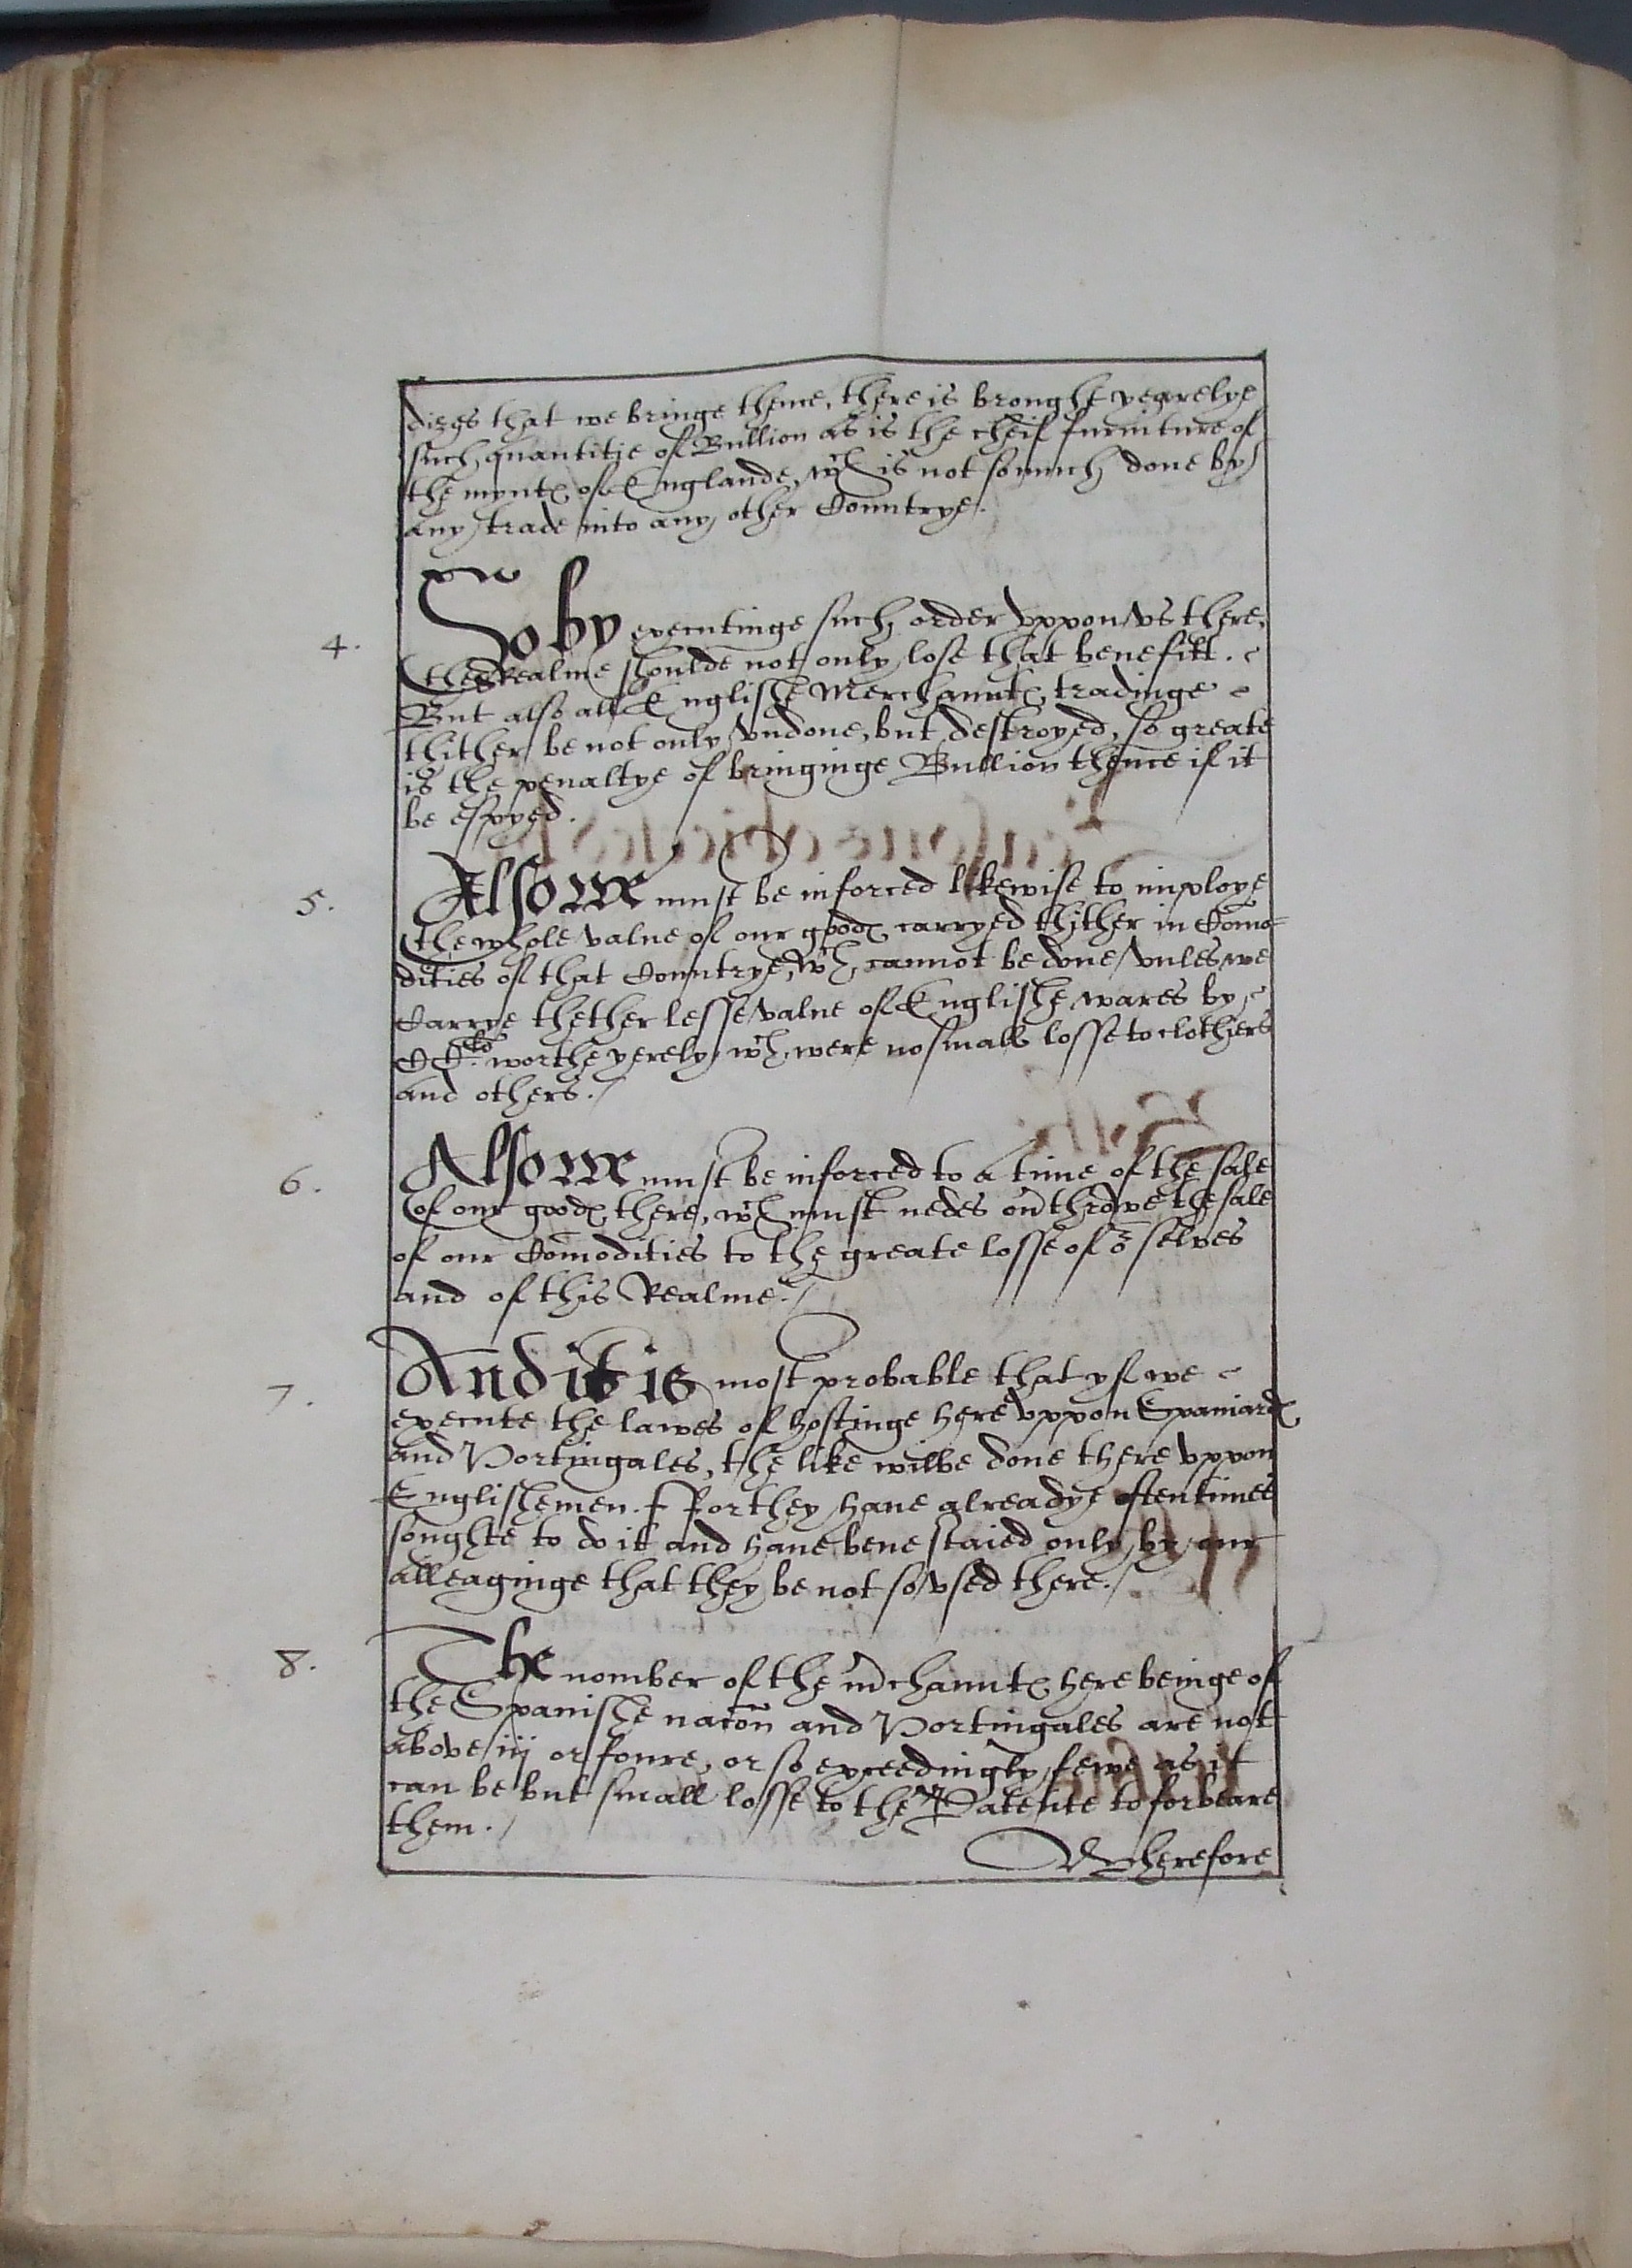 dizes that we bringe thence, there is broughte yearelye
such quantitie of Bullion as is the cheif furniture of
the mynt℮ of Englande, wch is not somuch done by
any trade into any other Countrye.
4. So by executinge such order vppon vs there,
the Realme shoulde not only lose that benefitt.
But also all Englishe Merchaunt℮ tradinge
thither be not only vndone, but destroyed, so greate
is the penaltye of bringinge Bullion thence if it
be espyed.
5. Also we must be inforced likewise to imploye
the whole value of our good℮ carryed thither in Como-
dities of that Countrye, wch cannot be done vnles we
Carrye thether lesse value of Englishe wares by
worthe yerely, wch were no small losse to clothiers
and others.
6. Also we must be inforced to a time of the sale
of our good℮ there, wch must nedes outhrowe the sale
of our Comodities to the greate losse of or selves
and of this Realme.
7. And it is most probable that yf we
execute the lawes of hostinge here vppon Spaniard℮
and Portingales, the like wilbe done there vppon
Englishemen. Ffor they haue alreadye oftentimes
soughte to do it and haue bene staied only by our
alleaginge that they be not so vsed there.
8. The nomber of the mchaunt℮ here beinge of
the Spanishe nacõn and Portingales are not
above iij or foure, or so exceedingly fewe as it
can be but small losse to the Patente to forbeare
them.
Wherefore